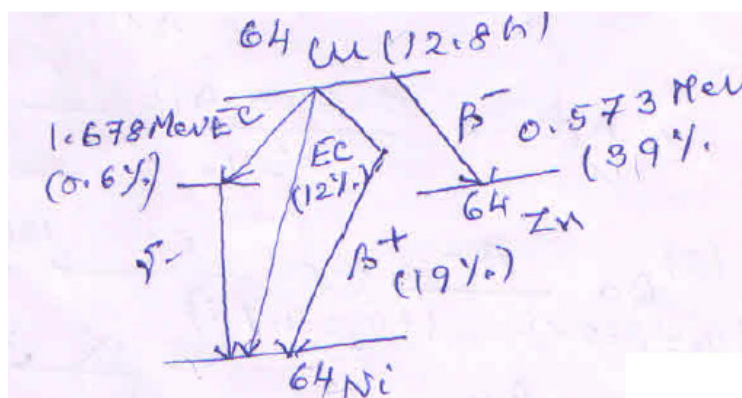 64 Cu (12.8h)
1.678 MeV EC
(0.6%)
EC
(12%)
β⁻ 0.573 MeV
(39%
64 Zn
γ
β⁺
(19%)
64 Ni